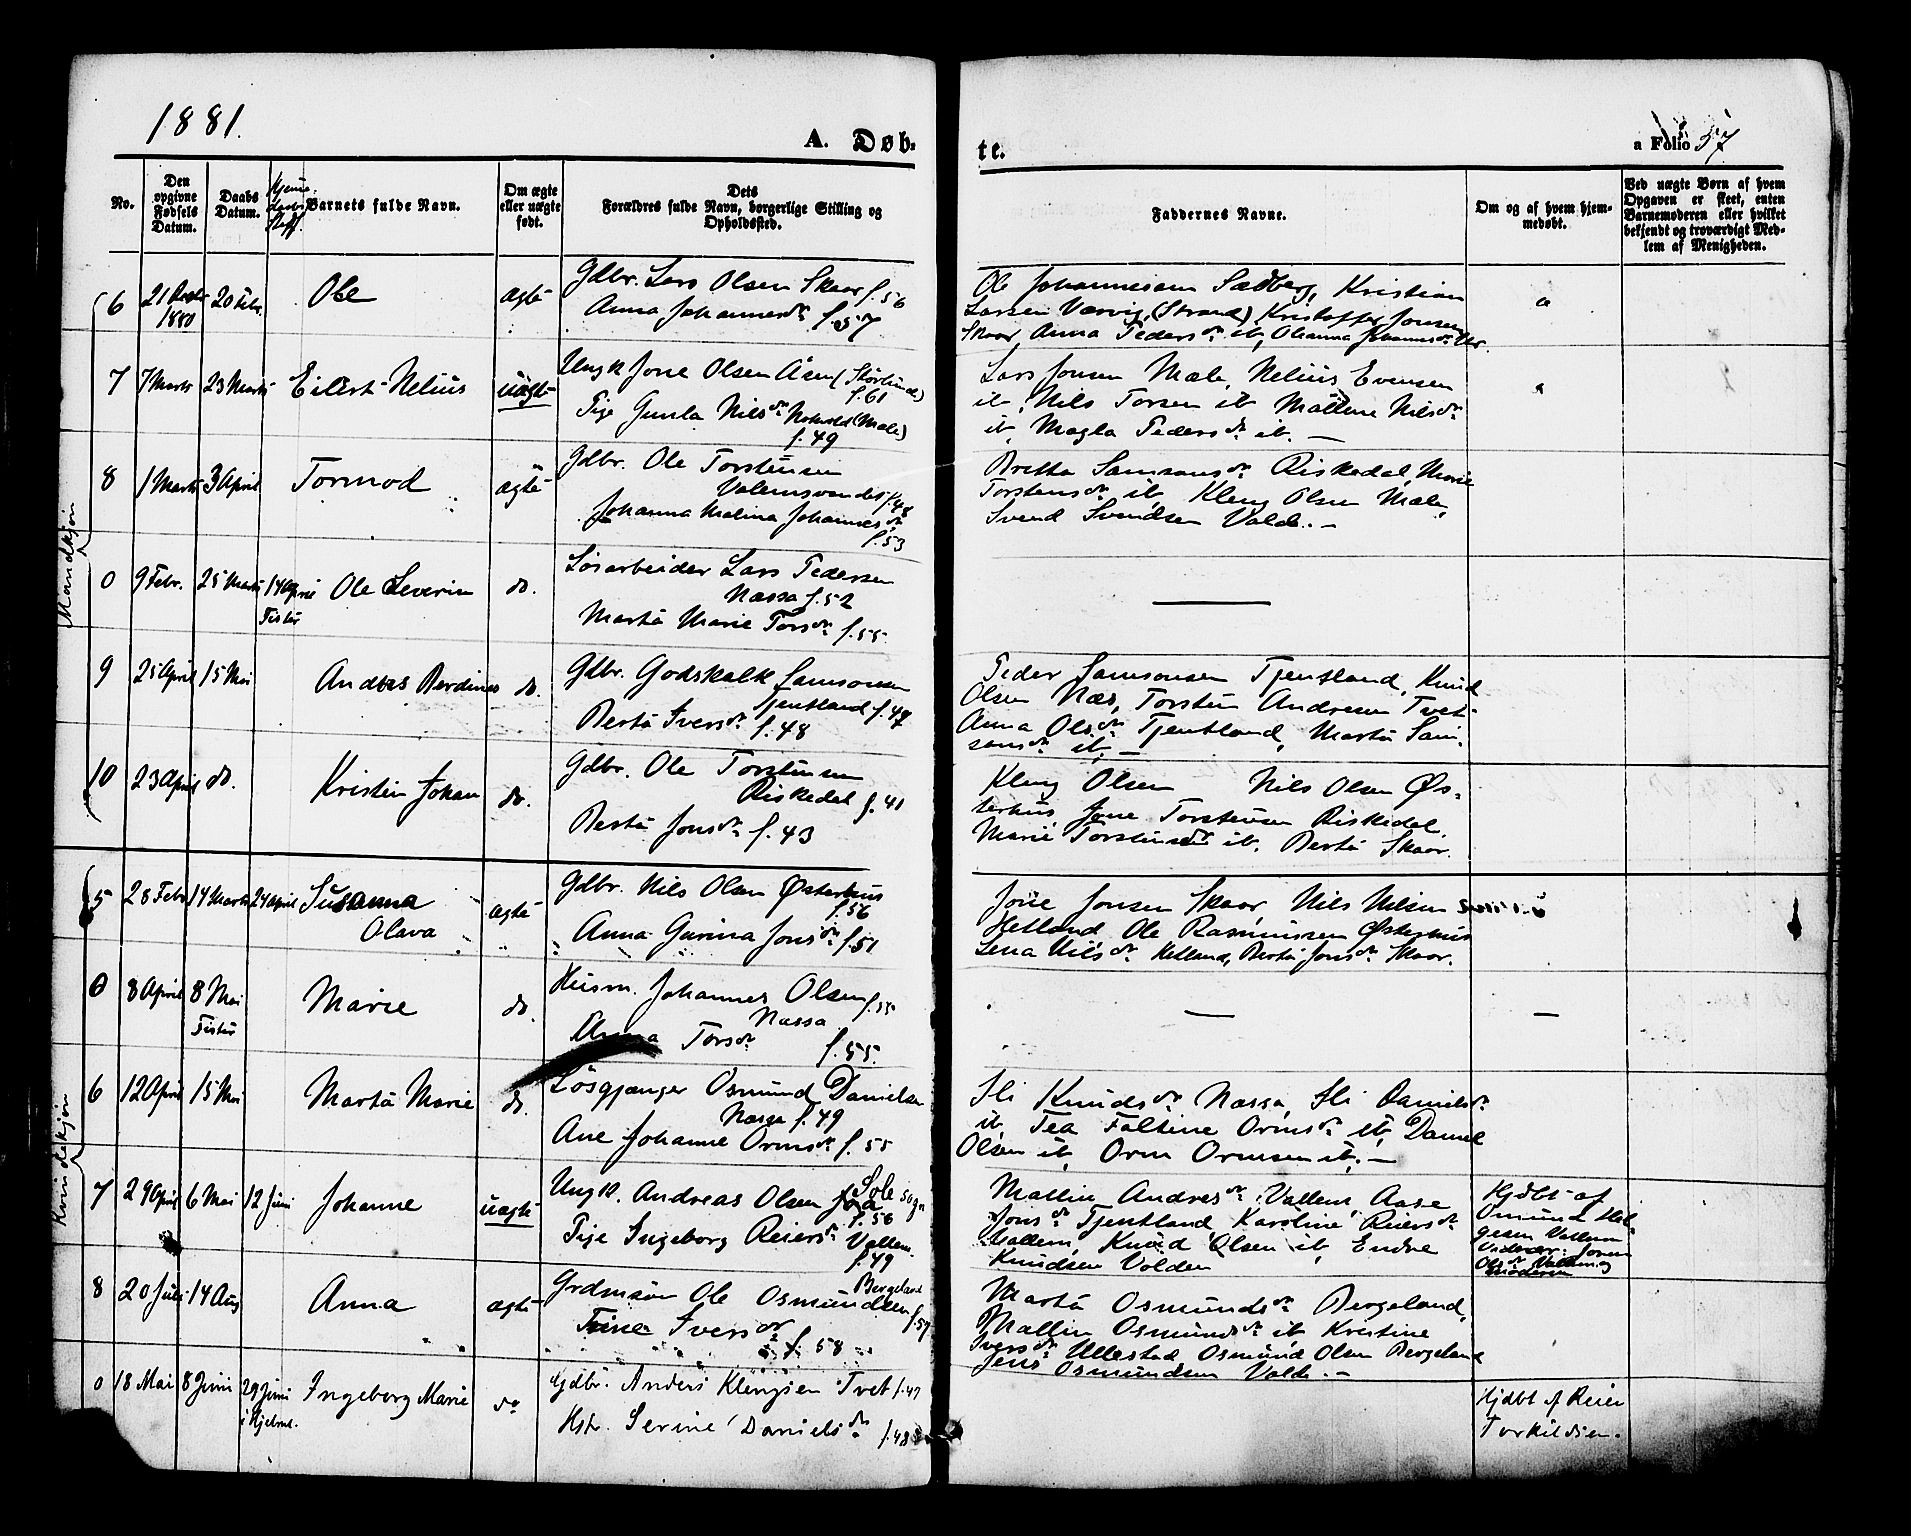 1881.
A. Døb-
te.
a Folio 57
No.
Den opgivne Fødsels Datum.
Daabs Datum.
Barnets fulde Navn.
Om ægte eller uægte født.
Dets Forældres fulde Navn, borgerlige Stilling og Opholdssted.
Faddernes Navne.
Om og af hvem hjem-
medøbt.
Ved uægte Børn af hvem
Opgaven er skeet, enten
Barnemoderen eller hvilket
bekjendt og troværdigt Med-
lem af Menigheden.
Mandkjøn
6 1880 20 Febr. Ole ægte Gdbr. Lars Olsen Skaar f. 56
Anna Johannesdr f. 57
Ole Johannesen Sædberg, Kristian
Larsen Værvig (Strand), Kristoffer Jonsen
Skaar, Anna Pedersdr ib, Oleanna Johannesdr
7 7 Marts 23 Marts Eilert Nelius uægte Ungk Jone Olsen Åsen
f. 61
Pige Gunla Nilsdr (Mæle)
f. 49
Lars Jonsen Mæle, Nelius Evensen
ib, Nils Torsen ib Mallene Nilsdr
ib, Magla Pedersdr ib. —
8 1 Marts 3 April Tormod ægte Gdbr. Ole Torstensen
f. 48
Johanna Malina Johannesdr
f. 53
Britta Samsonsdr Riskedal, Marie
Torstensdr ib, Kleng Olsen Mæle,
Svend Svendsen Valde. —
0 9 Febr. 25 Marts 14 April Fister Ole Severin do. Løsarbeider Lars Pedersen
Næssa f. 52
Marta Marie Torsdr f. 55
—
9 25 April 15 Mai Andres Berdines do. Gdbr. Godskalk Samsonsen
Tjentland f. 47
Berta Iversdr f. 48
Peder Samsonsen Tjentland, Knud
Olsen Næs, Torsten Andresen Tvet
Anna Olsdr Tjentland, Marta Sam-
sonsdr ib, —
10 23 April do. Kristen Johan do. Gdbr. Ole Torstensen
Riskedal f. 41
Berta Jonsdr f. 43
Kleng Olsen Nils Olsen Øs-
terhus, Jone Torstensen Riskedal,
Marie Torstensdr ib. Berta Skaar.
Kvindekjøn
5 28 Febr 14 Marts 24 April Susanna
Olava ægte Gdbr. Nils Olsen Østerhus
f. 56
Anna Gurina Jonsdr f. 51
Jone Jonsen Skaar, Nils Nilsen
Hetland Ole Rasmussen Østerhus
Lena Nilsdr Hetland, Berta Jonsdr Skaar.
0 8 April 8 Mai
Fister Marie do. Husm. Johannes Olsen f. 55
Næssa
Anna Torsdr f. 55.
— —
6 12 April 15 Mai Marta Marie do. Løsgjænger Osmund Danielsen
Næssa f. 49
Ane Johanne Ormsdr f. 55
Sli Knudsdr Næssa, Sli Danielsdr
ib, Tea Faltine Ormsdr ib, Daniel
Olsen ib, Orm Ormsen ib. —
7 29 April 6 Mai 12 Juni Johanne uægte Ungk. Andreas Olsen Sole sogn
f. 56
Pige Ingeborg Reiersdr Vallem
f. 49
Mallin Andresdr Vallem, Aase
Jonsdr Tjentland Karoline Reiersdr
Vallem, Knud Olsen ib, Endre
Knudsen Volden
Hjdbt af
Osmund Hel-
gesen Vallem
8 20 Juli 14 Aug Anna ægte Grdmsøn Ole Osmundsen Bergeland
f. 57
Trine Iversdr f. 58
Marta Osmundsdr Bergeland,
Mallin Osmundsdr ib, Kristine
Iversdr Ullestad Osmund Olsen Bergeland
Jens Osmundsen Valde. —
0 18 Mai 8 Juni 29 Juni
i Hjelme. Ingeborg Marie do Gdbr. Anders Klengsen Tvet f. 47
Hstr. Serine Danielsdr f. 48
Hjdbt af Reier
Torkildsen.